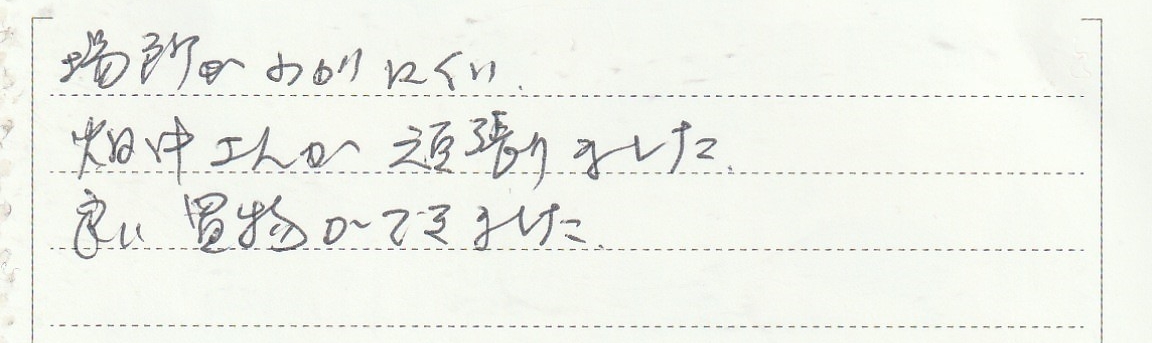 場所がわかりにくい.
畑中さんが頑張りました.
良い買物ができました.